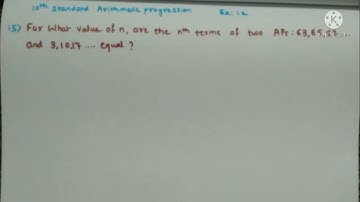 10th standard Arithmetic progression Ex: 1.2
15) For What value of n, are the nth terms of two APs: 63, 65, 67 ....
and 3, 10, 17 .... equal ?